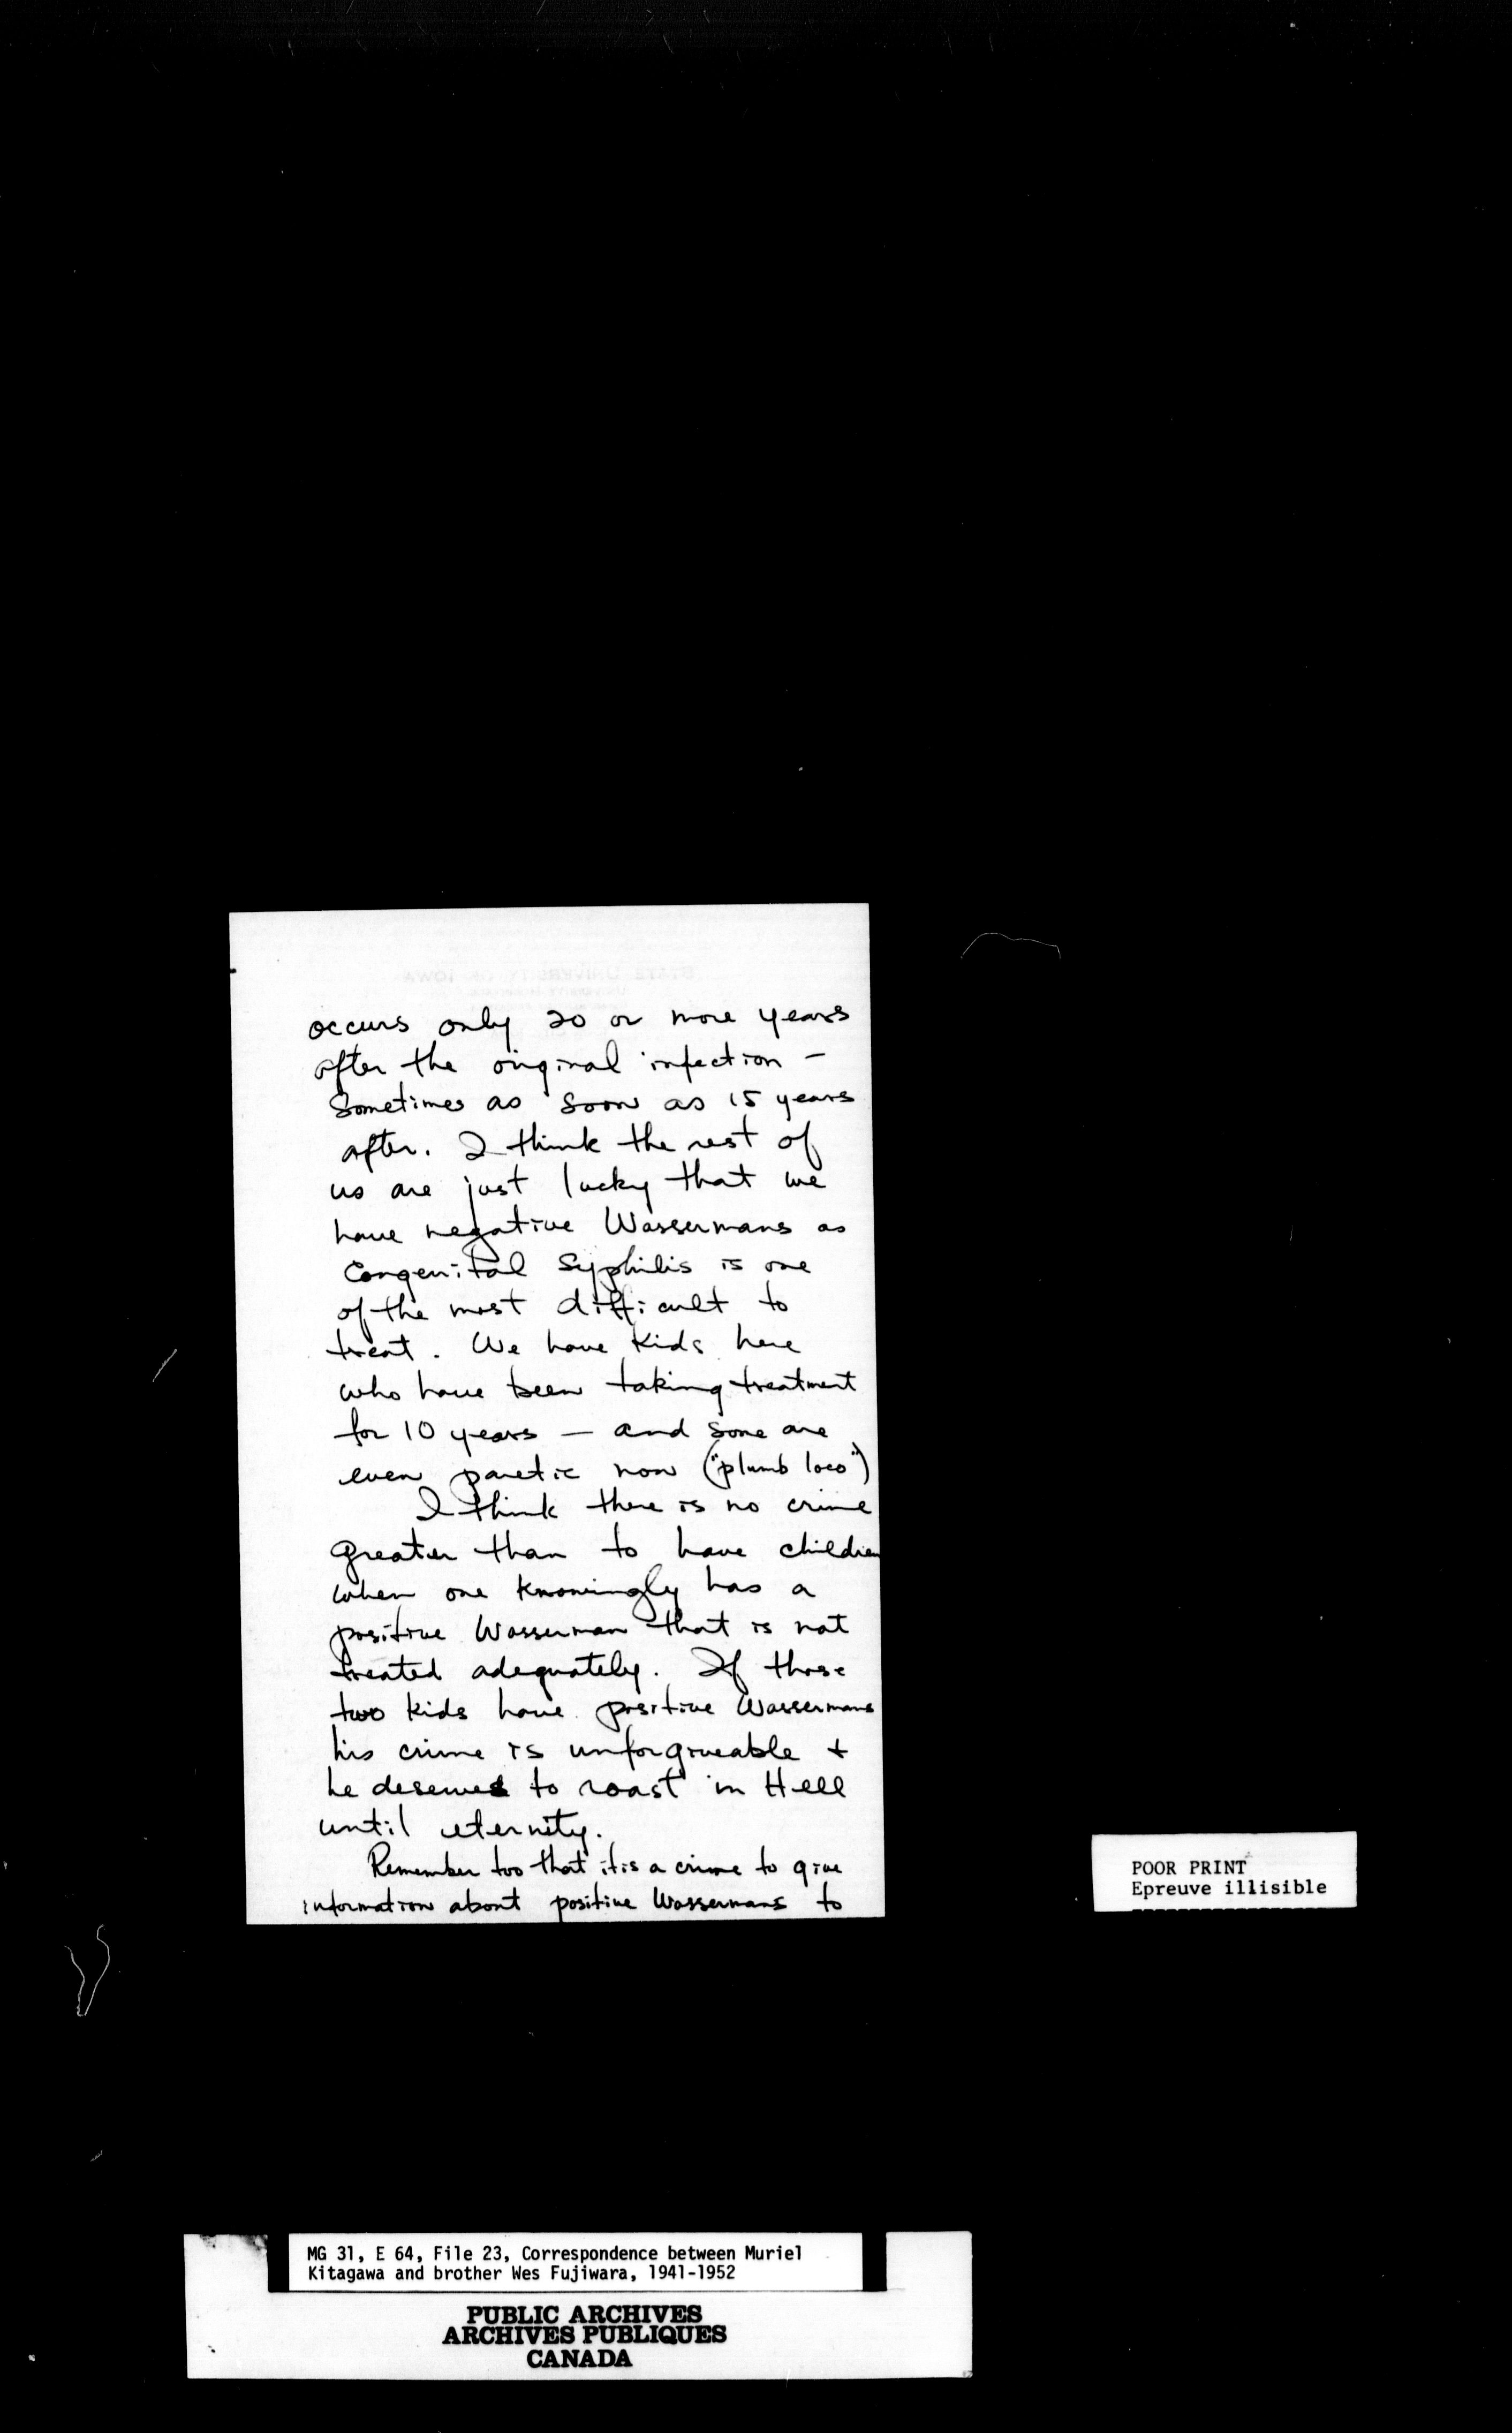 STATE UNIVERSITY OF IOWA
occurs only 20 or more years
after the original infection –
Sometimes as soon as 15 years
after. I think the rest of
us are just lucky that we
have negative Wassermans as
Congenital Syphilis is one
of the most difficult to
treat. We have kids here
who have been taking treatment
for 10 years — and some are
even paretic now ("plumb loco")
I think there is no crime
greater than to have children
when one knowingly has a
positive Wasserman that is not
treated adequately. If those
two kids have positive Wassermans
his crime is unforgiveable +
he deserves to roast in Hell
until eternity.
Remember too that it is a crime to give
information about positive Wassermans to
POOR PRINT
Epreuve illisible
MG 31, E 64, File 23, Correspondence between Muriel
Kitagawa and brother Wes Fujiwara, 1941-1952
PUBLIC ARCHIVES
ARCHIVES PUBLIQUES
CANADA